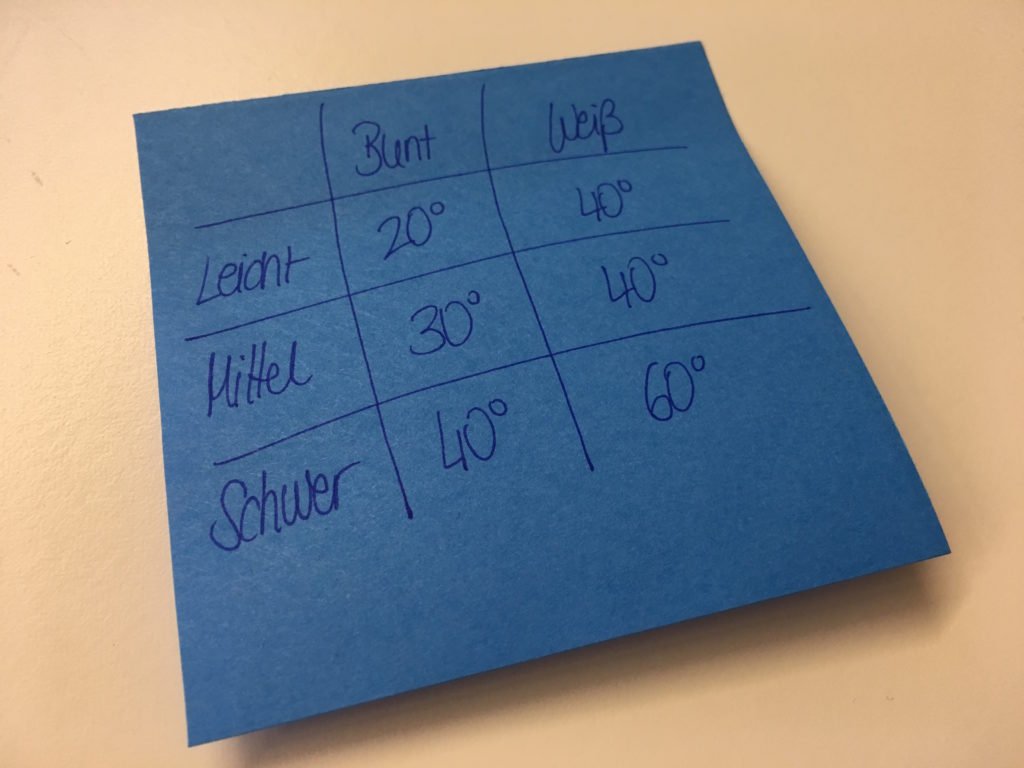 Bunt Weiß
Leicht 20° 40°
Mittel 30° 40°
Schwer 40° 60°